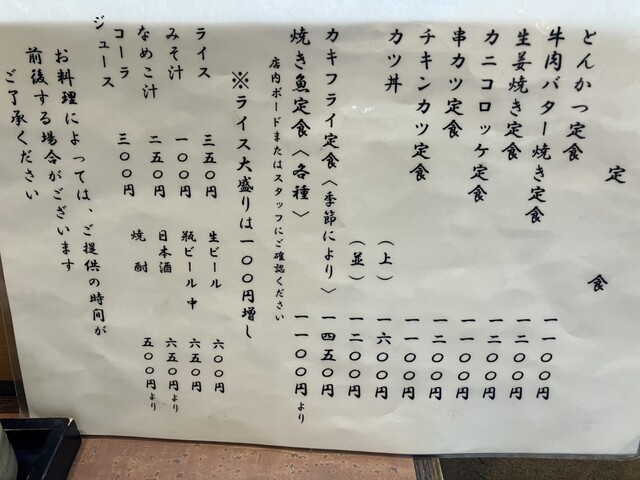 定食
とんかつ定食 一一〇〇円
牛肉バター焼き定食 一二〇〇円
生姜焼き定食 一一〇〇円
カニコロッケ定食 一一〇〇円
串カツ定食 一二〇〇円
チキンカツ定食 一一〇〇円
カツ丼 （上） 一六〇〇円
（並） 一二〇〇円
カキフライ定食〈季節により〉 一四五〇円
焼き魚定食〈各種〉 一一〇〇円より
店内ボードまたはスタッフにご確認ください
※ライス大盛りは一〇〇円増し
ライス 三五〇円
みそ汁 一〇〇円
なめこ汁 二五〇円
コーラ 三〇〇円
ジュース
生ビール 六〇〇円
瓶ビール中 六五〇円
日本酒 六五〇円より
焼酎 五〇〇円より
お料理によっては、ご提供の時間が
前後する場合がございます
ご了承ください